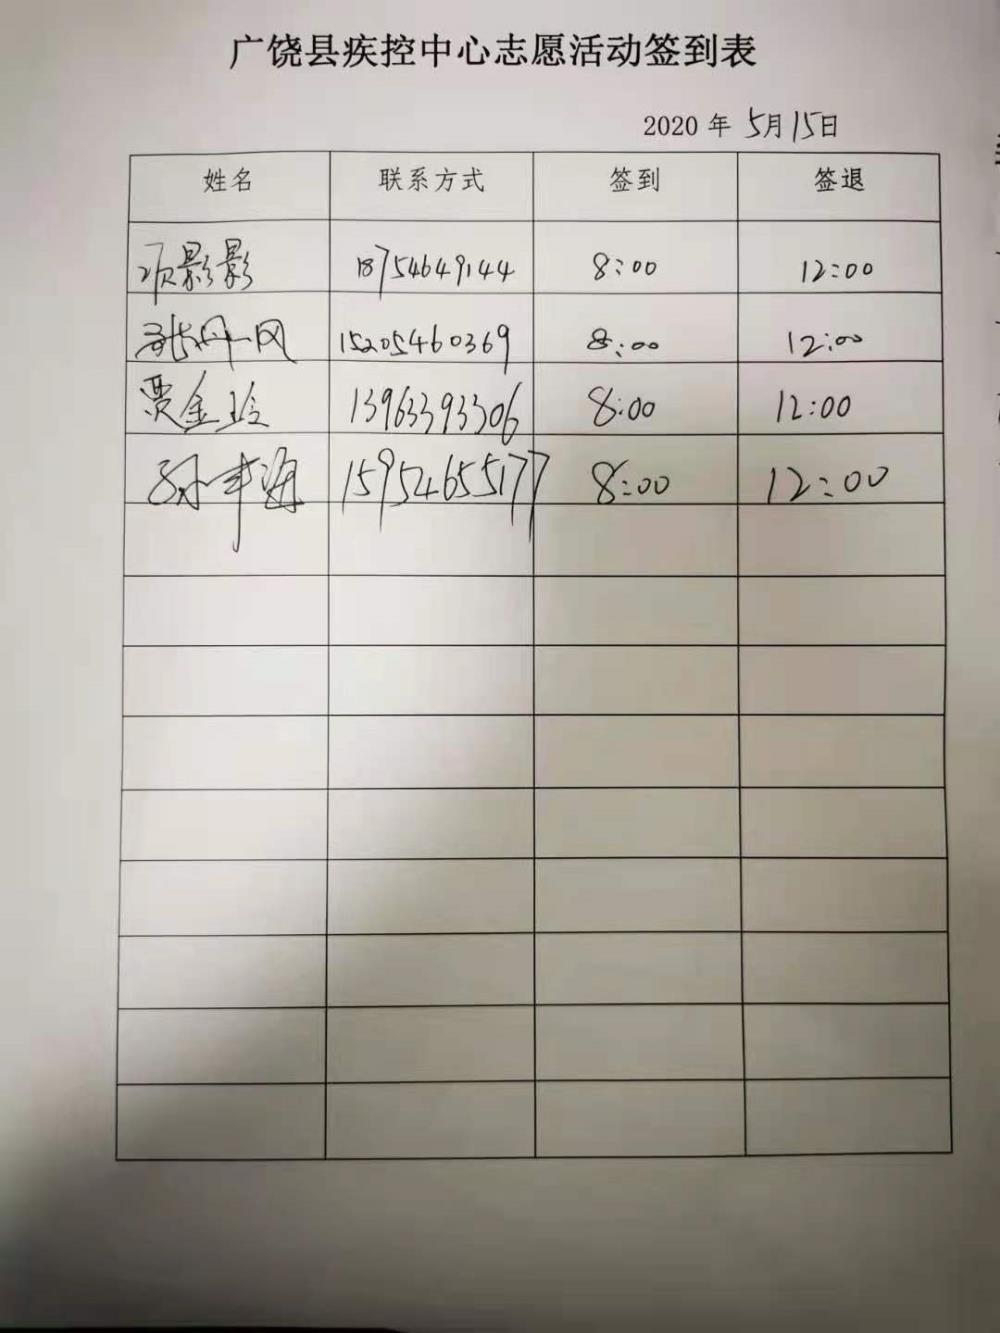 广饶县疾控中心志愿活动签到表
2020 年 5月15日
姓名 联系方式 签到 签退
项影影 18754649144 8:00 12:00
张丹风 15205460369 8:00 12:00
贾金玲 13963393306 8:00 12:00
孙丰海 15954655177 8:00 12:00